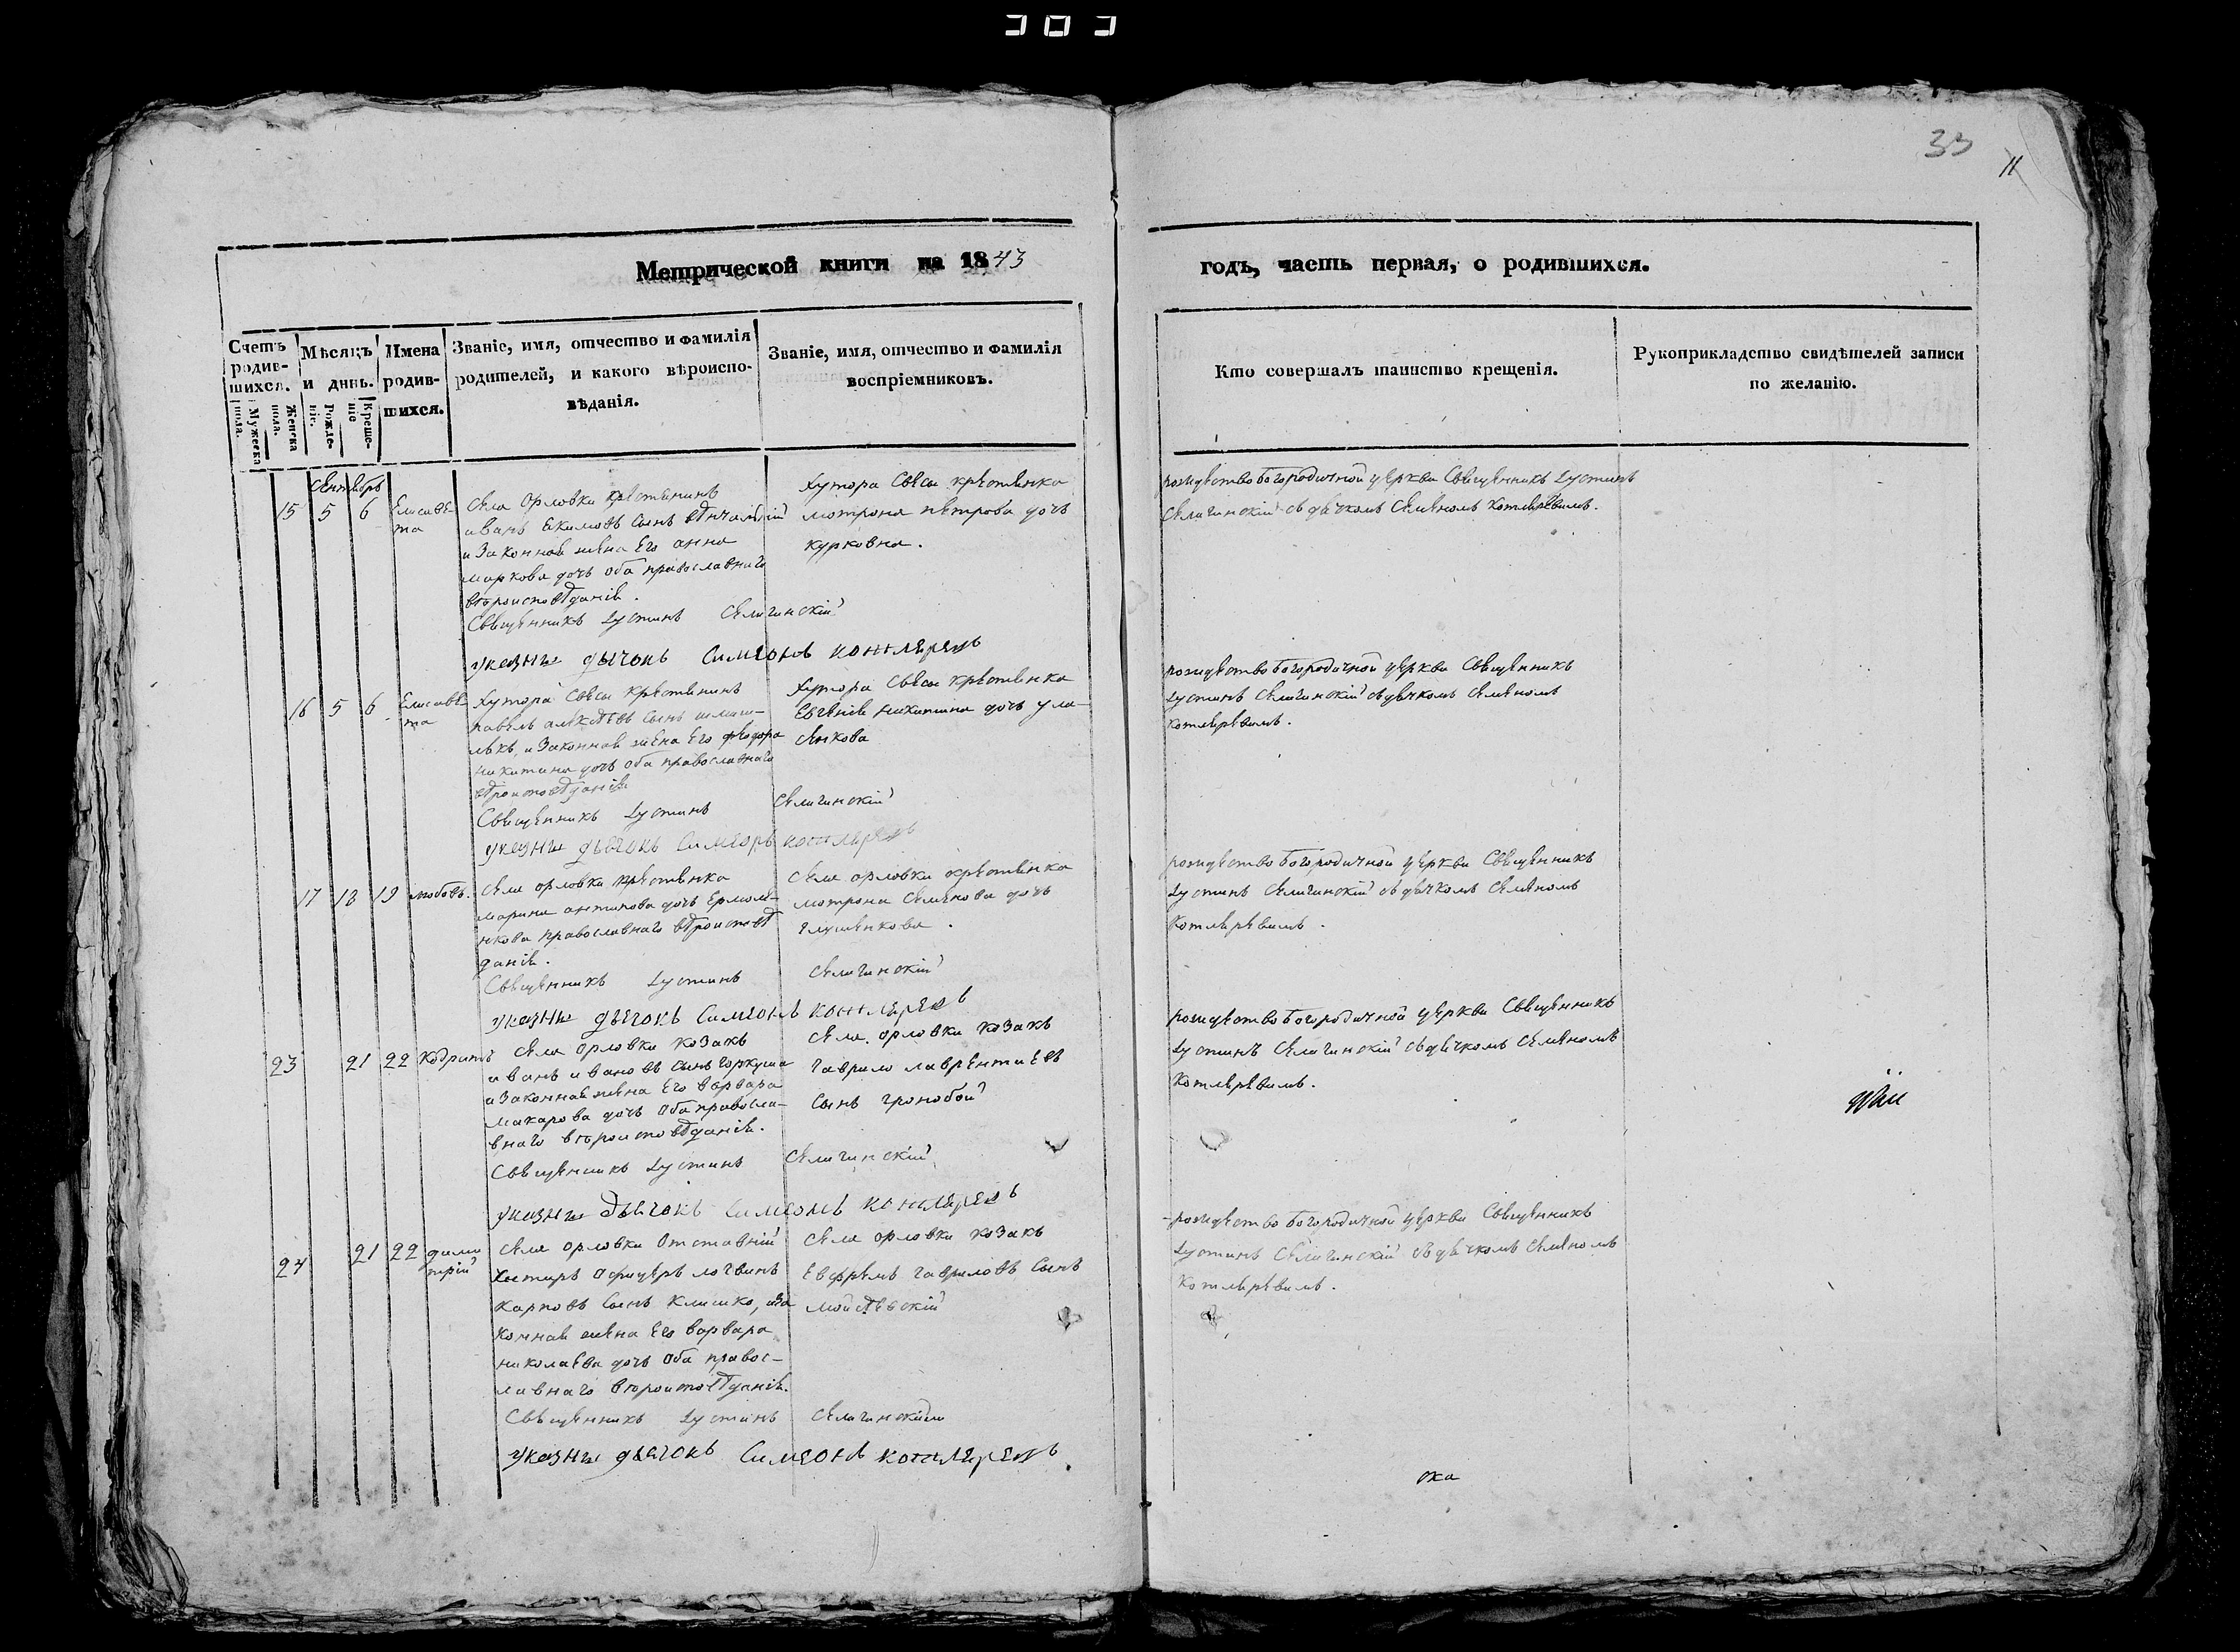 33
11
Метрической книги на 1843
годъ, часть первая, о родившихся.
Счетъ родив-шихся.
Мужеска пола.
Женска пола.
Мѣсяцъ и день.
Рожде-ніе.
Креще-ніе
Имена родив-шихся.
Званіе, имя, отчество и фамилія
родителей, и какого вѣроиспо-
вѣданія.
Званіе, имя, отчество и фамилія
воспріемниковъ.
Кто совершалъ таинство крещенія.
Рукоприкладство свидѣтелей записи
по желанію.
сентябрь
15 5 6 Елисаве
та
села орловки крестянинъ
иванъ Екимовъ сынъ
и законная жена Его анна
маркова дочь оба православнаго
вѣроисповѣданія.
Священникъ Іустинъ Селигинскій
указны дьячокъ Симеонъ котляревъ
Хутора Свесы крестянка
мотрона петрова дочь
куркова.
рождествобогородичной церкви Священникъ Іустинъ
Селигинскій съ дячкомъ Семеномъ котляревимъ.
16 5 6 Елисаве
та
Хутора Свесы крестянинъ
павелъ алексѣевъ сынъ
и законная жена Его феодора
никитина дочь оба православнаго
вѣроисповѣданія
Священникъ Іустинъ Селигинскій
указны дьячокъ Симеонъ котляревъ
Хутора Свесы крестянка
Евгенія никитина дочь ула-
сенкова
рождествобогородичной церкви Священникъ
Іустинъ Селигинскій съ дячкомъ Семеномъ
котляревимъ.
17 18 19 любовь.
села орловки крестянка
марина антипова дочь Ермоле-
нкова православнаго вѣроисповѣ
данія.
Священникъ Іустинъ Селигинскій
указны дьячокъ Симеонъ котляревъ
села орловки крестянка
мотрона Семенова дочь
глушенкова.
рождествобогородичной церкви Священникъ
Іустинъ Селигинскій съ дячкомъ Семеномъ
Котляревимъ.
23 21 22 Кодратъ
села орловки козакъ
иванъ ивановъ сынъ горкуша
и законная жена Его варвара
макарова дочь оба правосла-
внаго вѣроисповѣданія.
Священникъ Іустинъ Селигинскій
указны дьячокъ Симеонъ котляревъ
села орловки козакъ
гаврило лаврентиевъ
сынъ гронобой
рождествобогородичной церкви Священникъ
Іустинъ Селигинскій съ дячкомъ Семеномъ
Котляревимъ.
24 21 22 дими
трій
села орловки отставній
унтеръ офицеръ логвинъ
карповъ сынъ клишко, и за
конная жена Его варвара
николаева дочь оба правос-
лавнаго вѣроисповѣданія.
Священникъ Іустинъ Селигинскій
указны дьячокъ Симеонъ котляревъ.
села орловки козакъ
Ефремъ гавриловъ сынъ
мойсѣевскій
рождествобогородичной церкви Священникъ
Іустинъ Селигинскій съ дячкомъ Семеномъ
Котляревимъ.